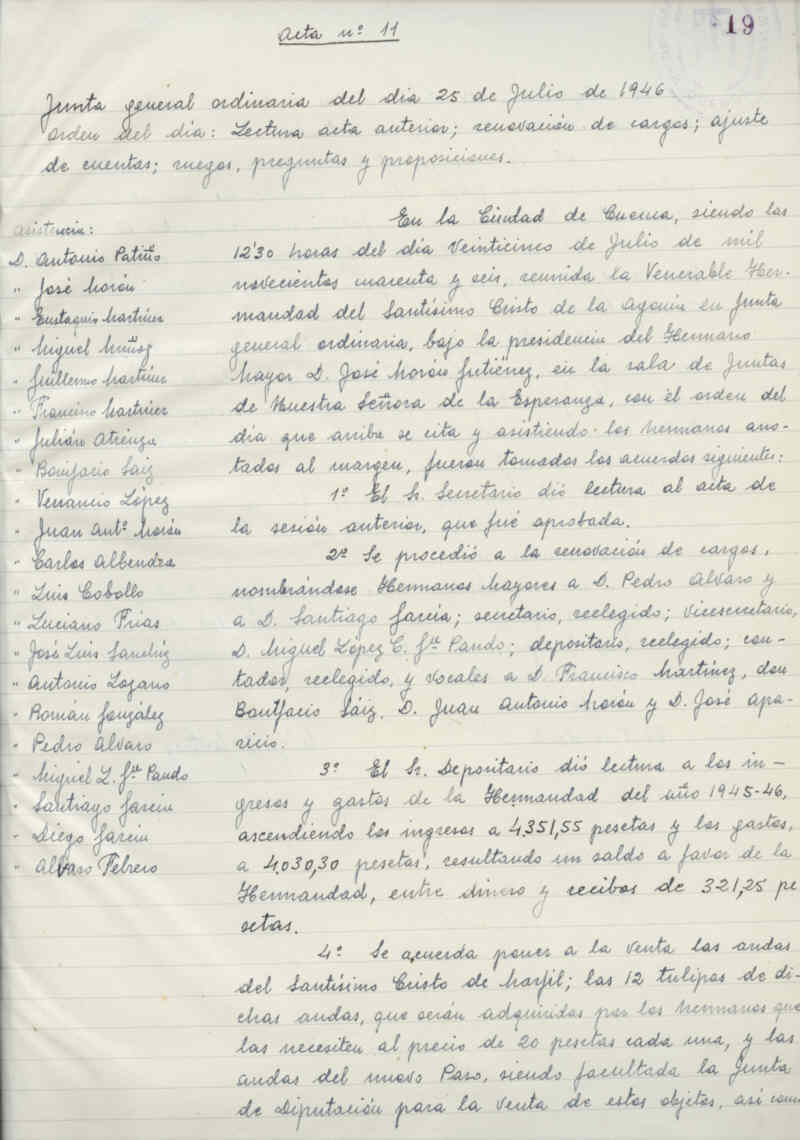 Acta nº 11
19
Junta general ordinaria del dia 25 de Julio de 1946
Orden del dia: Lectura acta anterior; renovación de cargos; ajuste
de cuentas; ruegos, preguntas y proposiciones.
Asistencia:
D. Antonio Patiño
" José Morón
" Eustaquio Martínez
" Miguel Muñoz
" Guillermo Martínez
" Francisco Martínez
" Julián Atienza
" Bonifacio Saiz
" Venancio López
" Juan Antº Morón
" Carlos Albendea
" Luis Cobollo
" Luciano Frias
" José Luis
" Antonio Lozano
" Román González
" Pedro Alvaro
" Miguel L. Gª Pando
" Santiago Garcia
" Diego Garcia
" Alvaro Febrero
En la Ciudad de Cuenca, siendo las
12'30 horas del dia Veinticinco de Julio de mil
novecientos cuarenta y seis, reunida la Venerable Her-
mandad del Santísimo Cristo de la Agonia en Junta
general ordinaria, bajo la presidencia del Hermano
Mayor D. José Morón Gutiérrez, en la sala de Juntas
de Nuestra Señora de la Esperanza, con el orden del
día que arriba se cita y asistiendo los hermanos ano-
tados al margen, fueron tomados los acuerdos siguientes:
1º El Sr. Secretario dió lectura al acta de
la sesión anterior, que fué aprobada.
2º Se procedió a la renovación de cargos,
nombrándose Hermanos Mayores a D. Pedro Alvaro y
a D. Santiago García; secretario, reelegido; Vicesecretario,
D. Miguel López C. Gª Pando; depositario, reelegido; con-
tador, reelegido, y vocales a D. Francisco Martínez, don
Bonifacio Sáiz, D. Juan Antonio Morón y D. José Apa-
ricio.
3º El Sr. Depositario dió lectura a los in-
gresos y gastos de la Hermandad del año 1945-46,
ascendiendo los ingresos a 4.351,55 pesetas y los gastos,
a 4.030,30 pesetas, resultando un saldo a favor de la
Hermandad, entre dinero y recibos de 321,25 pe
setas.
4º Se acuerda poner a la venta las andas
del Santísimo Cristo de Marfil; las 12 tulipas de di-
chas andas, que serán adquiridas por los hermanos que
las necesiten al precio de 20 pesetas cada una, y las
andas del nuevo Paso, siendo facultada la Junta
de Diputación para la venta de estos objetos, así como